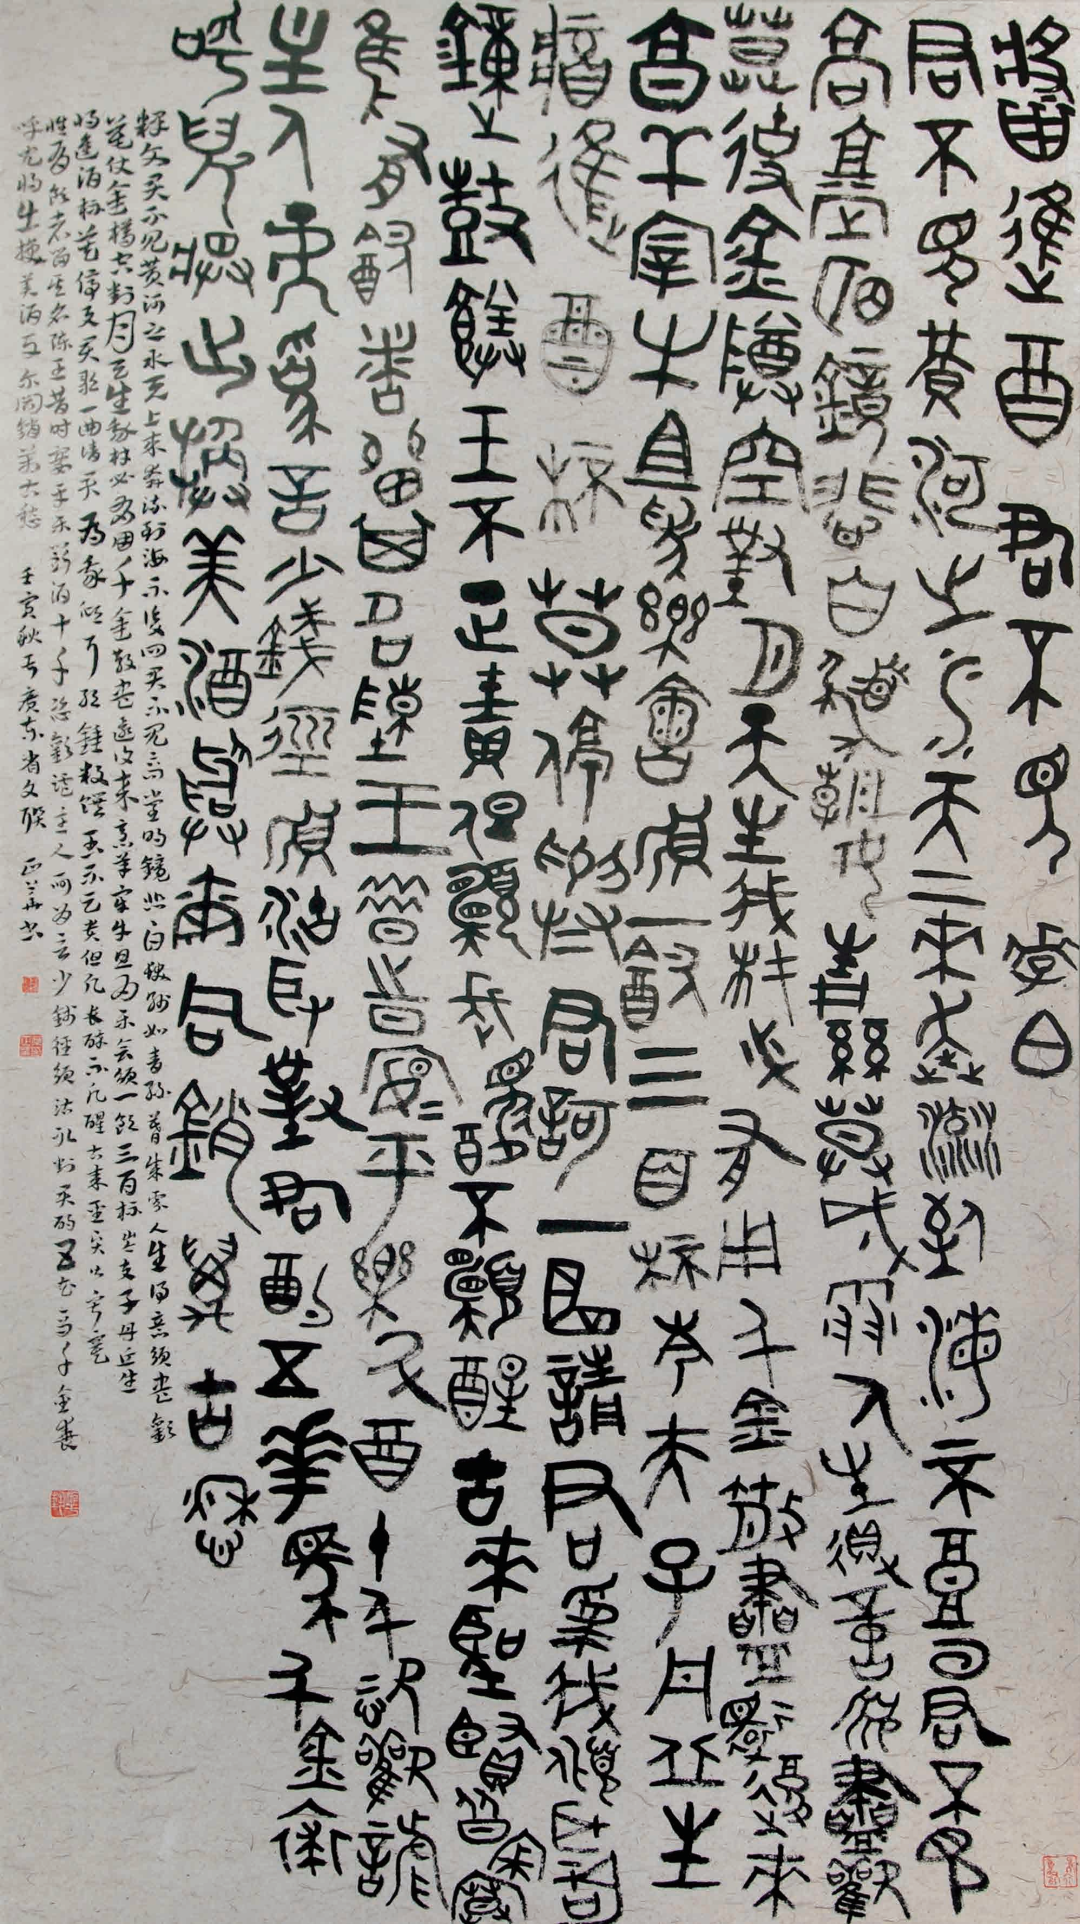 將進酒 君不見 李白
君不見黃河之水天上來奔流到海不復回君不見
高堂明鏡悲白髮朝如青絲暮成雪人生得意須盡歡
莫使金樽空對月天生我材必有用千金散盡還復來
烹羊宰牛且為樂會須一飲三百杯岑夫子丹丘生
將進酒杯莫停與君歌一曲請君為我傾耳聽
鐘鼓饌玉不足貴但願長醉不願醒古來聖賢皆寂寞
惟有飲者留其名陳王昔時宴平樂斗酒十千恣歡謔
主人何為言少錢徑須沽取對君酌五花馬千金裘
呼兒將出換美酒與爾同銷萬古愁
釋文 君不見黃河之水天上來奔流到海不復回君不見高堂明鏡悲白髮朝如青絲暮成雪人生得意須盡歡
莫使金樽空對月天生我材必有用千金散盡還復來烹羊宰牛且為樂會須一飲三百杯岑夫子丹丘生
將進酒杯莫停與君歌一曲請君為我傾耳聽鐘鼓饌玉不足貴但願長醉不願醒古來聖賢皆寂寞
惟有飲者留其名陳王昔時宴平樂斗酒十千恣歡謔主人何為言少錢徑須沽取對君酌五花馬千金裘
呼兒將出換美酒與爾同銷萬古愁 壬寅秋於廣東省文聯